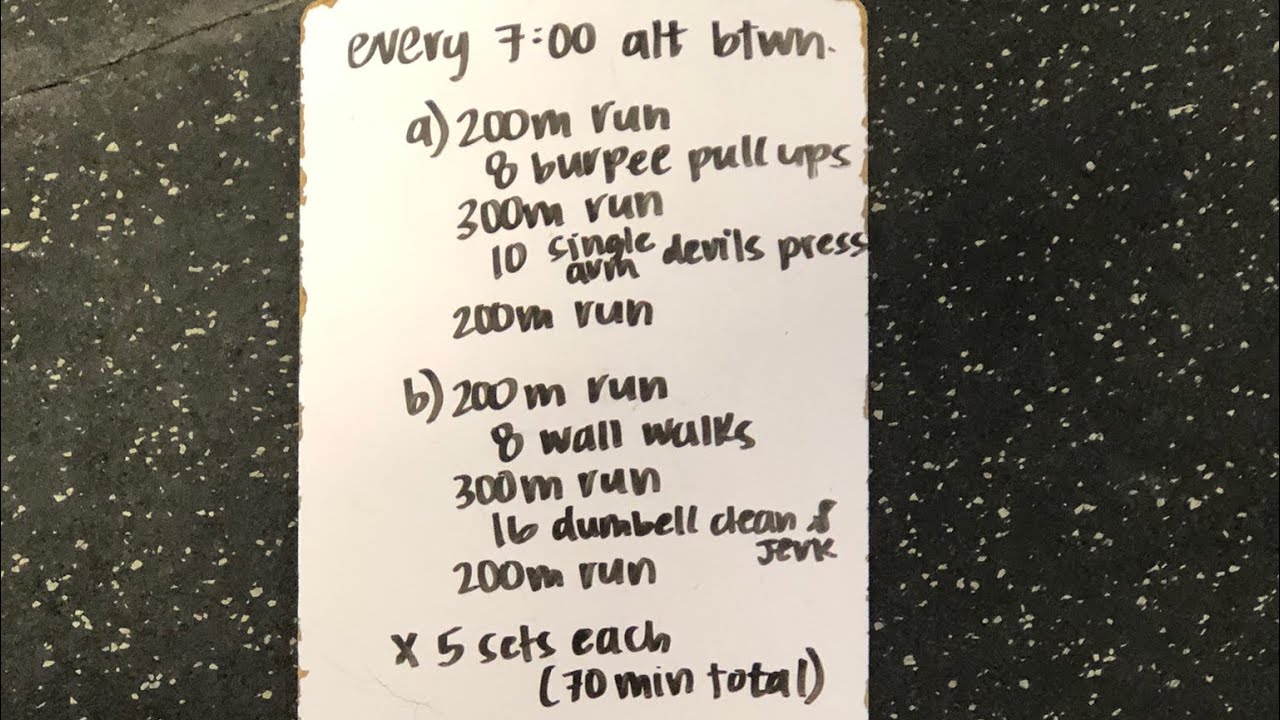 every 7:00 alt btwn.
a) 200m run
8 burpee pull ups
300m run
10 single arm devils press
200m run
b) 200m run
8 wall walks
300m run
16 dumbell clean &
jerk
200m run
x 5 sets each
(70 min total)